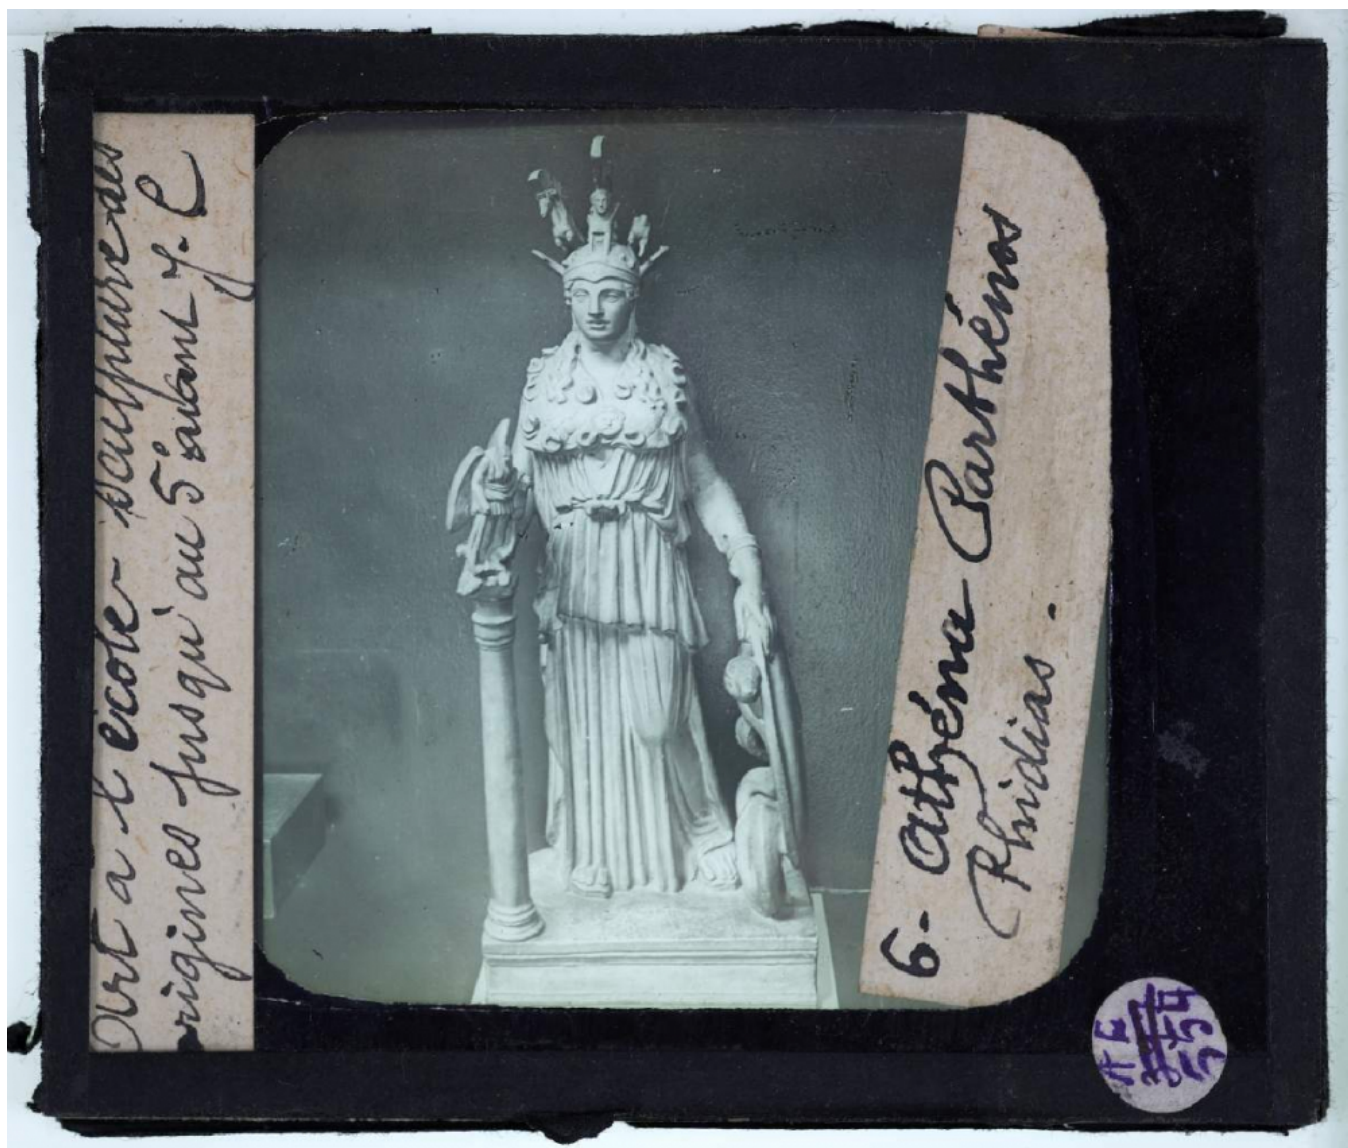 Art à l'école - sculpture des
origines jusqu'au 5e avant J. C
6 - Athéna Parthénos
Phidias.
AE
554